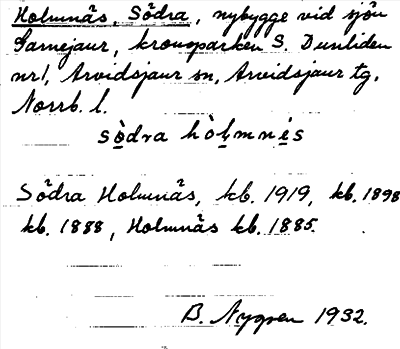 Holmnäs, Södra, nybygge vid sjön
Garnejaur, kronoparken S. Dunliden
nr 1, Arvidsjaur sn, Arvidsjaur tg,
Norrb. l.
södra hòlmnés
Södra Holmnäs, kb. 1919, kb. 1898
kb. 1888, Holmnäs kb. 1885.
B. Nygren 1932.